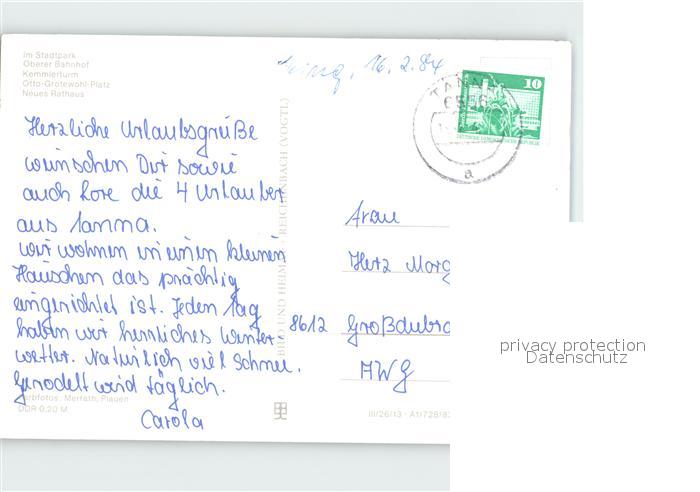 Im Stadtpark
Oberer Bahnhof
Kemmlerturm
Otto-Grotewohl-Platz
Neues Rathaus
16. 2. 84
TANNA
6556
a
10
DEUTSCHE DEMOKRATISCHE REPUBLIK
Herzliche Urlaubsgrüße
wünschen Dir sowie
auch Lore die 4 Urlauber
aus Tanna.
Wir wohnen in einen kleinen
Häuschen das prächtig
eingerichtet ist. Jeden Tag
haben wir herrliches Winter-
wetter. Natürlich viel Schnee.
Gerodelt wird täglich.
Carola
BILD UND HEIMAT REICHENBACH (VOGTL)
Herz Morg
8612 Großdubra
MWG
Farbfotos: Merfath, Plauen
DDR 0,20 M
III/26/13 · A1/728/82
privacy protection
Datenschutz